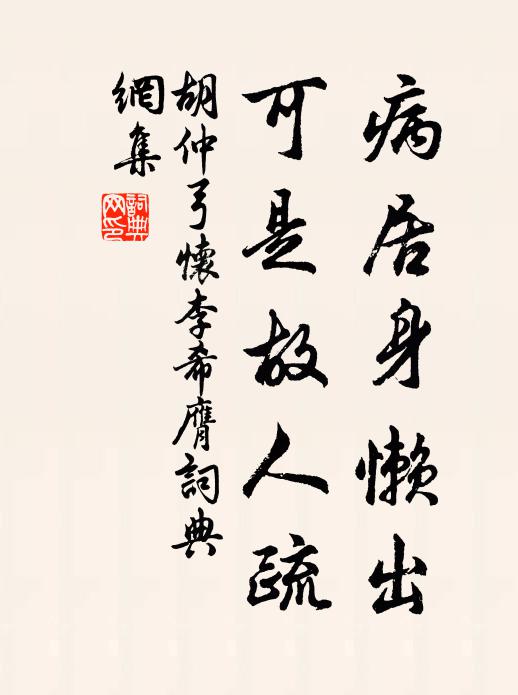 病居身懶出
可是故人疏
胡仲弓懷李希膺詞典
網集
詞典
网印